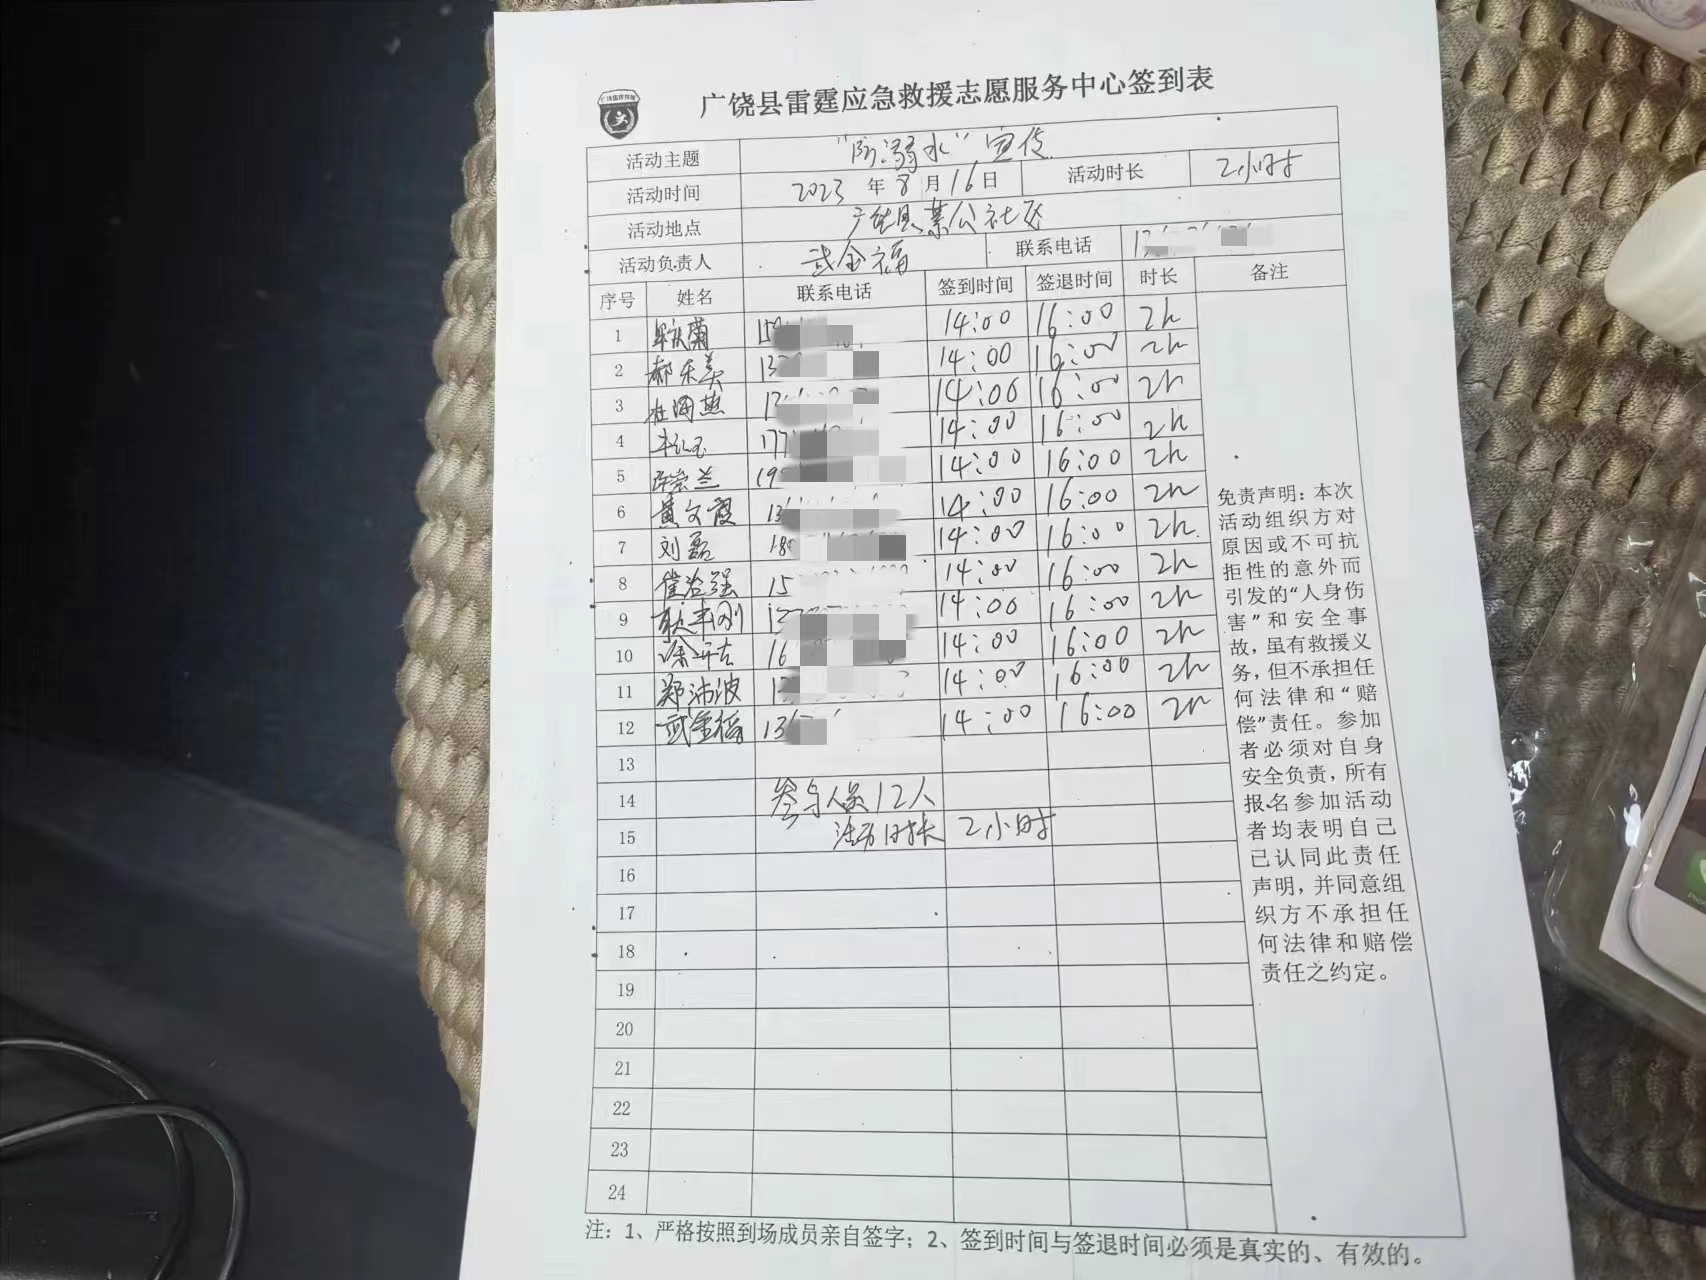 广饶县雷霆应急救援志愿服务中心签到表
活动主题 "防溺水"宣传
活动时间 2023 年 8 月 16 日 活动时长 2小时
活动地点 广饶县某公社区
活动负责人 武金福 联系电话
序号 姓名 联系电话 签到时间 签退时间 时长 备注
1 14:00 16:00 2h
2 郝乐美 13 14:00 16:00 2h
3 杜海燕 14:00 16:00 2h
4 177 14:00 16:00 2h
5 许崇兰 19 14:00 16:00 2h
6 黄文霞 13 14:00 16:00 2h
7 刘磊 18 14:00 16:00 2h
8 崔治强 15 14:00 16:00 2h
9 耿丰刚 14:00 16:00 2h
10 16 14:00 16:00 2h
11 郑沛波 14:00 16:00 2h
12 武金福 13 14:00 16:00 2h
13
14 参与人员12人
15 活动时长 2小时
16
17
18
19
20
21
22
23
24
免责声明：本次
活动组织方对
原因或不可抗
拒性的意外而
引发的"人身伤
害"和安全事
故，虽有救援义
务，但不承担任
何法律和"赔
偿"责任。参加
者必须对自身
安全负责，所有
报名参加活动
者均表明自己
己认同此责任
声明，并同意组
织方不承担任
何法律和赔偿
责任之约定。
注：1、严格按照到场成员亲自签字；2、签到时间与签退时间必须是真实的、有效的。